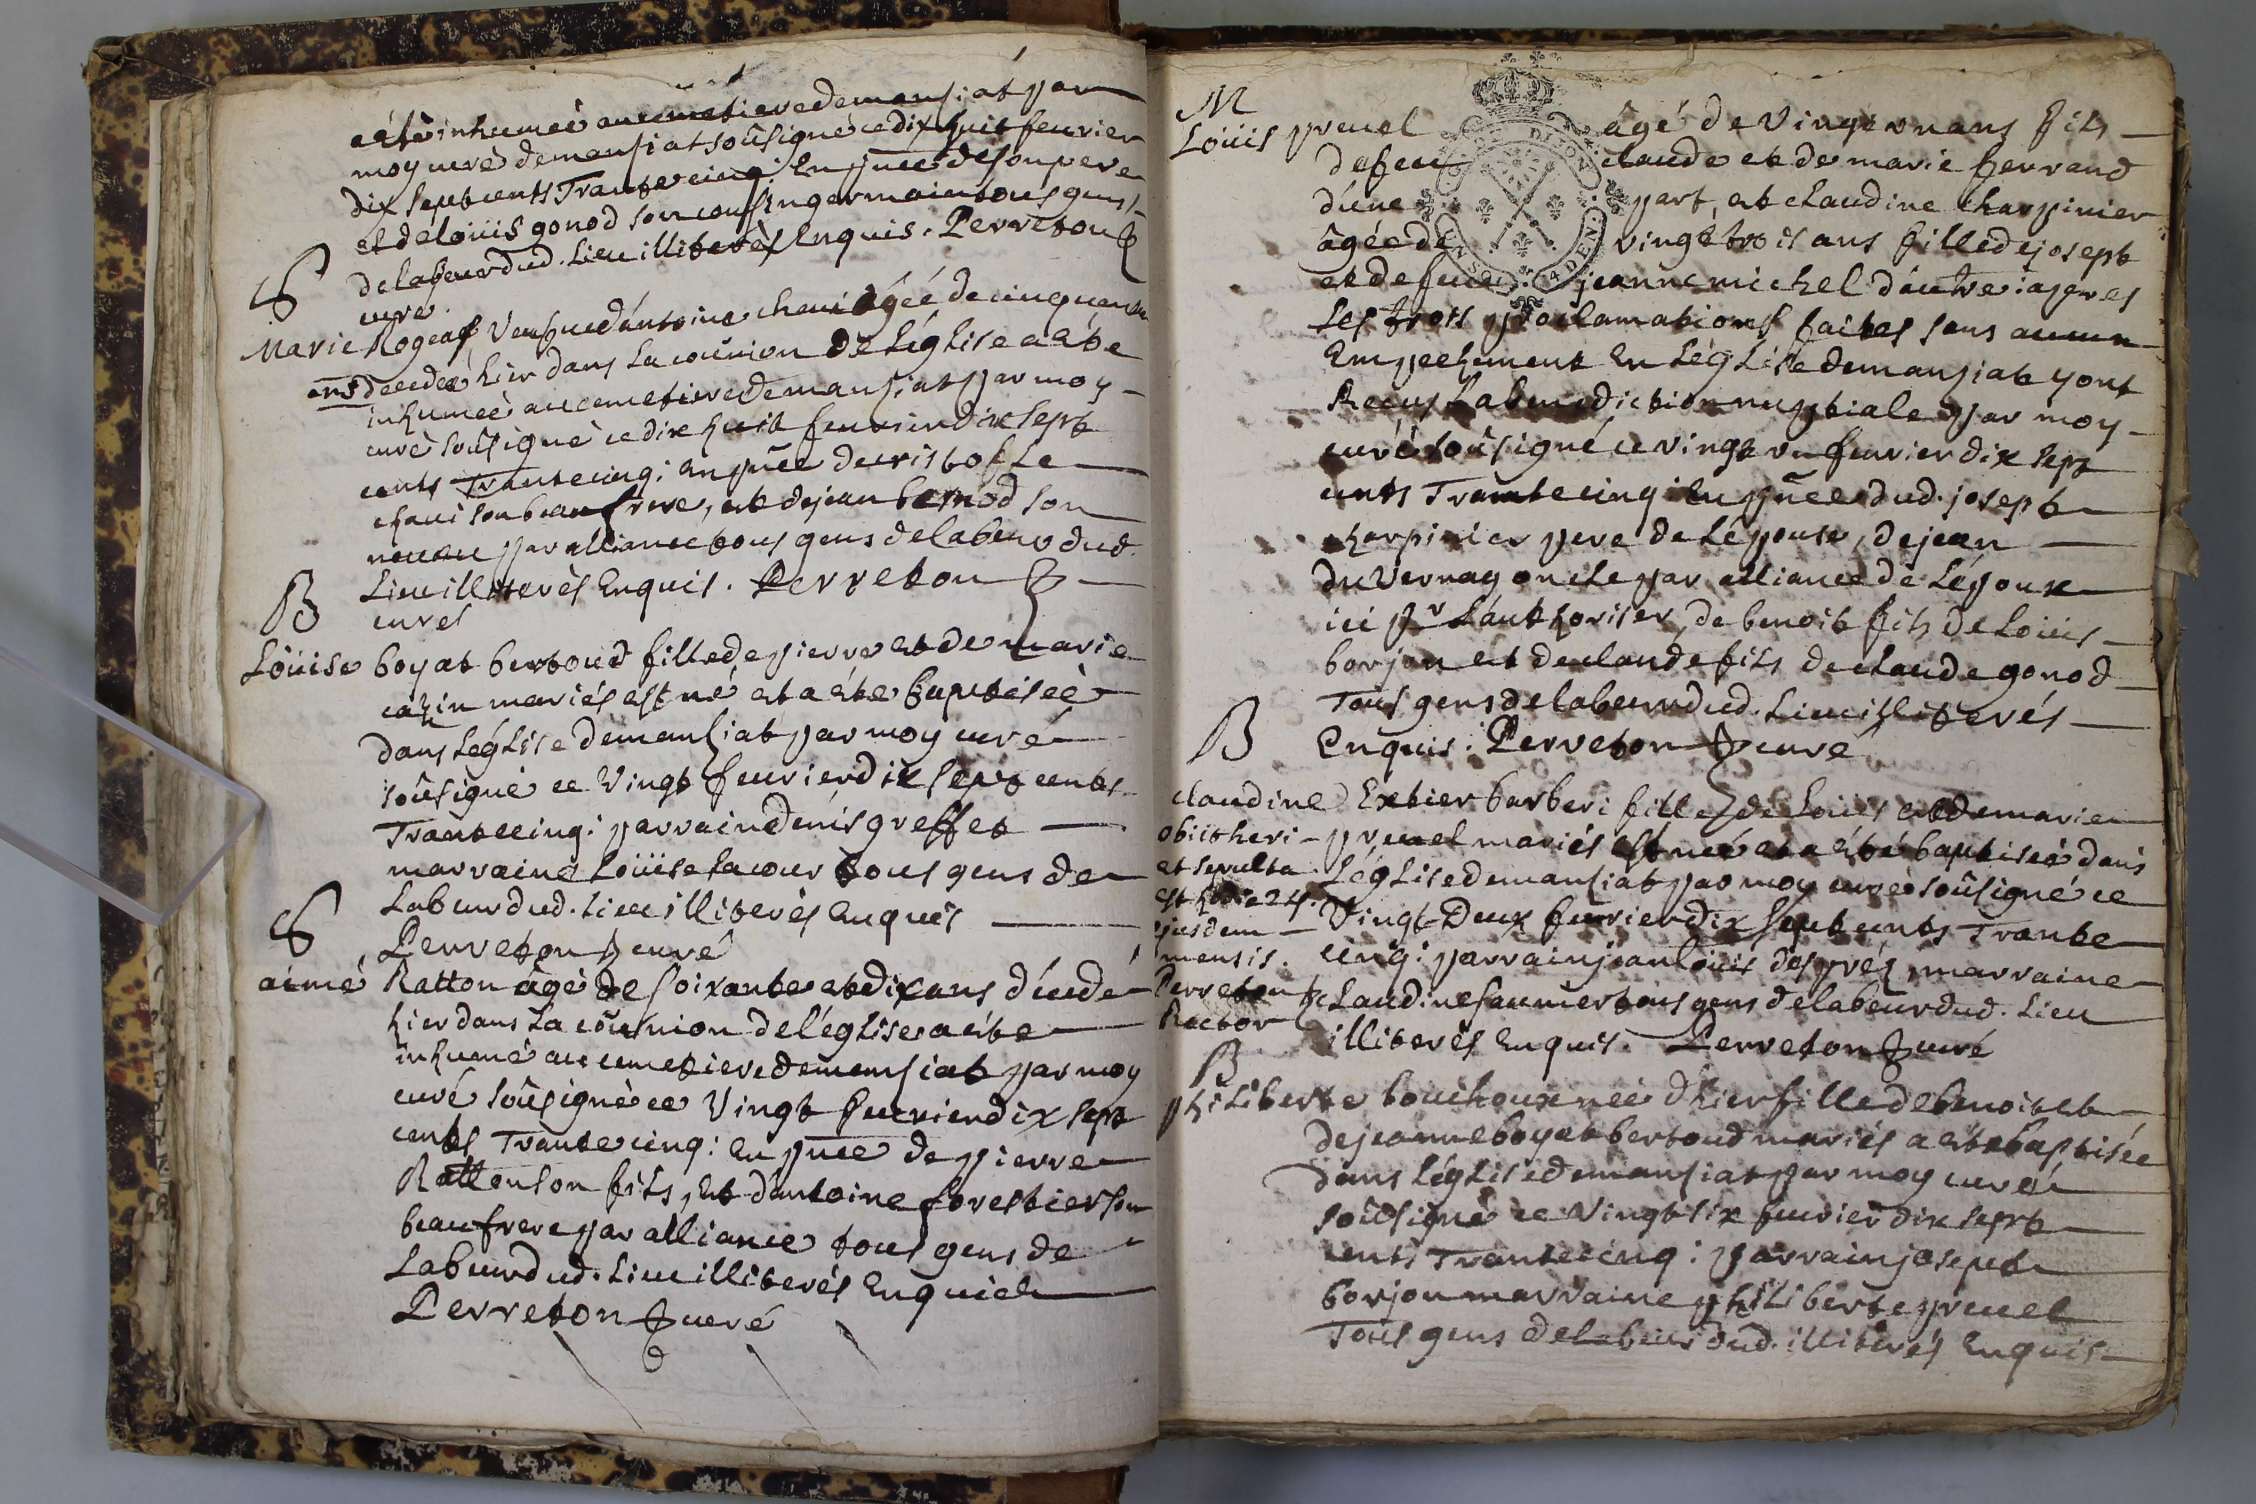 a été inhumeè au cemetiere demansiat par
moy curè demansiat soûsigné ce dix huit feuvrier
dix sept cents Trante cinq: En pnce de son pere
et de loüis gonod son cousin germain tous gens
de labeur dud. Lieu illiterès Enquis. Perreton
curé
S
Marie Rogeaf Veufve d'antoine chavi âgéé de cinquante
ans decedeè hier dans la coûnion de léglise a eté
inhumeè au cemetiere demansiat par moy
curè soûsigné ce dix huit feuvrier dix sept
cents Trante cinq: en pnce de cristofle
chavi son beaufrere, et de jean bernod son
neveu par alliance tous gens de labeur dud.
Lieu illiterès Enquis. Perreton
curé
B
Loüise boyat bertoud fille de pierre et de marie
cazin mariés est né et a éte baptiseè
dans léglise demansiat par moy curé
soûsigné ce Vingt feuvrier dix sept cents
Trante cinq: parrain denis greffet
marraine Loüise lacour tous gens de
Labeur dud. Lieu illiterès Enquis
Perreton curé
S
aimé Ratton âgè de soixante et dix ans décédé
hier dans la coûnion de l'église a éte
inhumé au cemetiere demansiat par moy
curé soûsigné ce Vingt feuvrier dix sept
cents Trante cinq: en pnce de pierre
Ratton son fils, et d'antoine forestier son
beaufrere par alliance tous gens de
Labeur dud. Lieu illiterés Enquis
Perreton curé
M
Loüis pruel âgé de Vingt un ans fils
defeu claude et de marie ferrand
d'une part, et claudine charpinier
âgée de vingt trois ans fille de josept
et de feue jeanne michel d'autre: apres
les trois proclamations faites sans aucun
Empechement En léglise demansiat y ont
Receus la benediction nuptiale par moy
curé soûsigné ce vingt un feuvrier dix sept
cents Trante cinq: En pnce dud. josept
charpinier pere de lépouse, de jean
duVernay oncle par alliance de lépoux
ici pr l'authoriser, de benoit fils de Loüis
borjon et de claude fils de claude gonod
Tous gens de labeur dud. Lieu illiterés
Enquis: Perreton curé
B
claudine Extier barberi fille de Loüis et de marie
pruel mariés est neé et a été baptiseè dans
léglise demansiat par moy curé soûsigné ce
Vingt Deux feuvrier dix sept cents Trante
cinq: parrain jean loüis després, marraine
claudine saunier tous gens de labeur dud. Lieu
illiterés Enquis. Perreton curé
obiit heri
et sepulta
est hodie 24.
ejusdem
mensis.
Perreton
Rector
B
philiberte bouchoux neé d'hier fille de benoit et
de jeanne boyat bertoud mariés a eté baptisée
dans léglise demansiat par moy curé
soûsigné ce Vingt six feuvrier dix sept
cents Trante cinq: parrain josept
borjon marraine philiberte pruel
Tous gens de labeur dud. illiterés Enquis